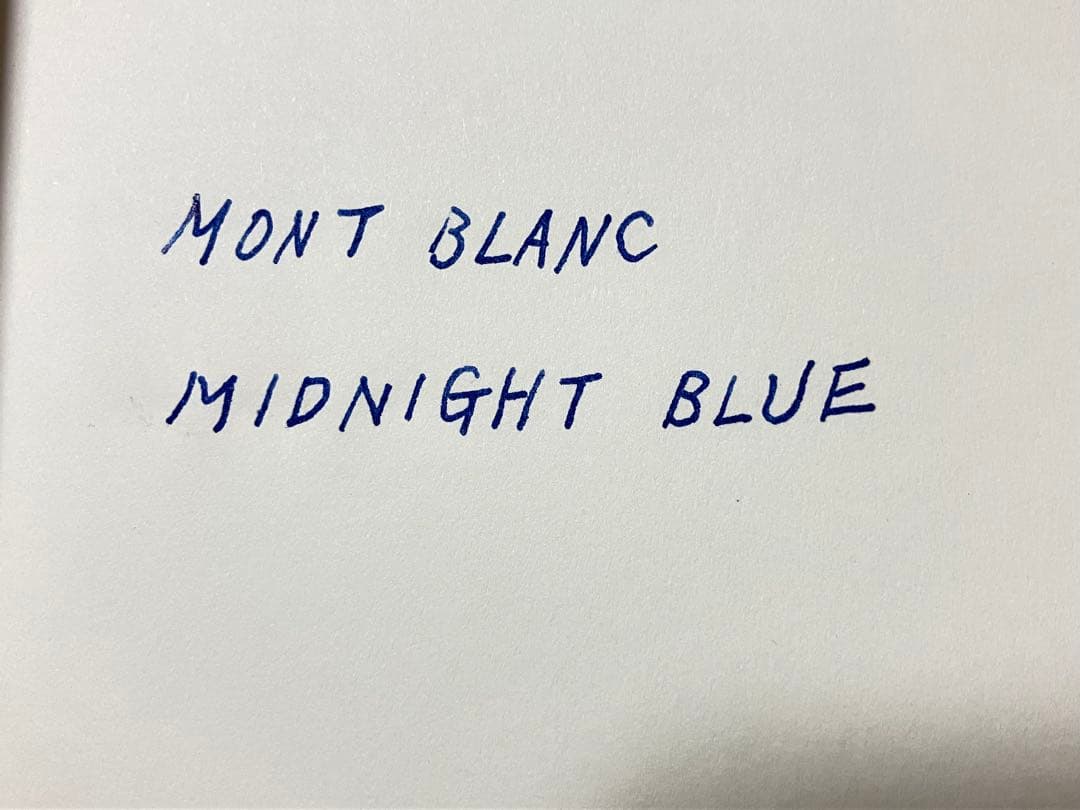 MONT BLANC
MIDNIGHT BLUE